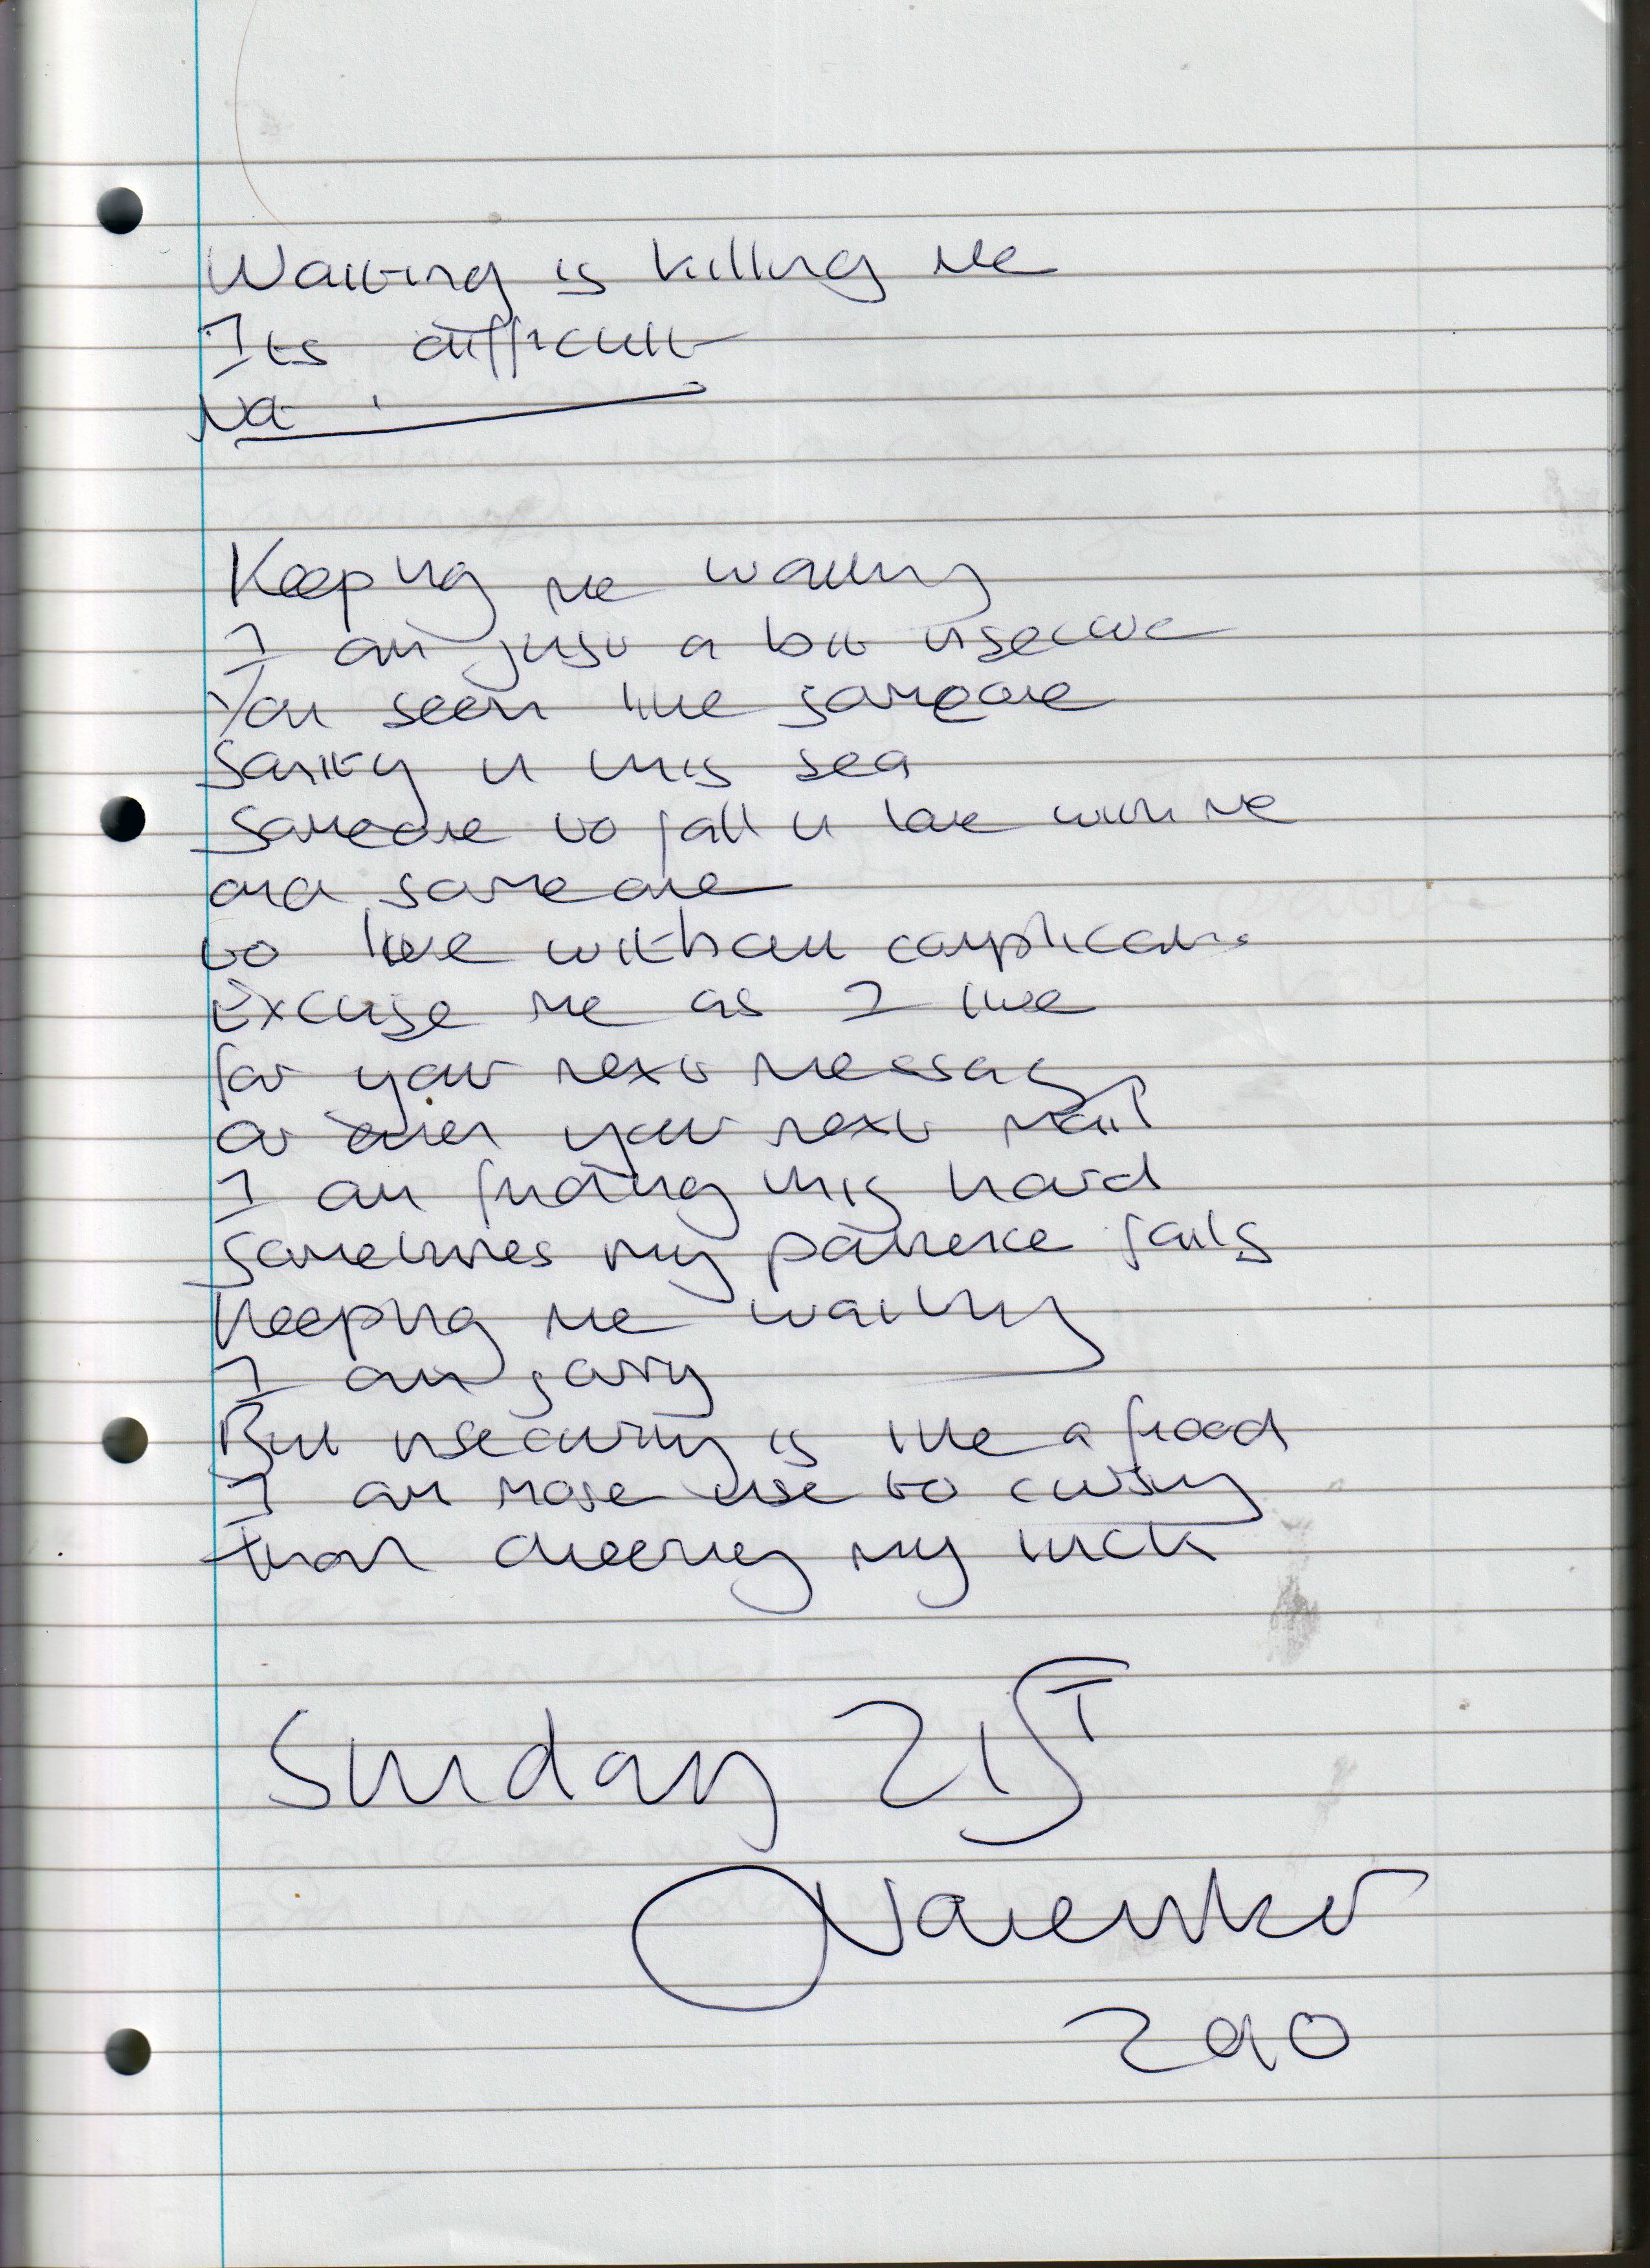 Waiting is killing me
Its difficult
Na
Keeping me waiting
I am just a bit insecure
You seem like someone
Sanity in this sea
Someone to fall in love with me
and someone
to live without complications
Excuse me as I live
for your next message
or even your next mail
I am finding this hard
Sometimes my patience fails
Keeping me waiting
I am sorry
But insecurity is like a flood
I am more use to cursing
than cheering my luck
Sunday 21ST
November
2010